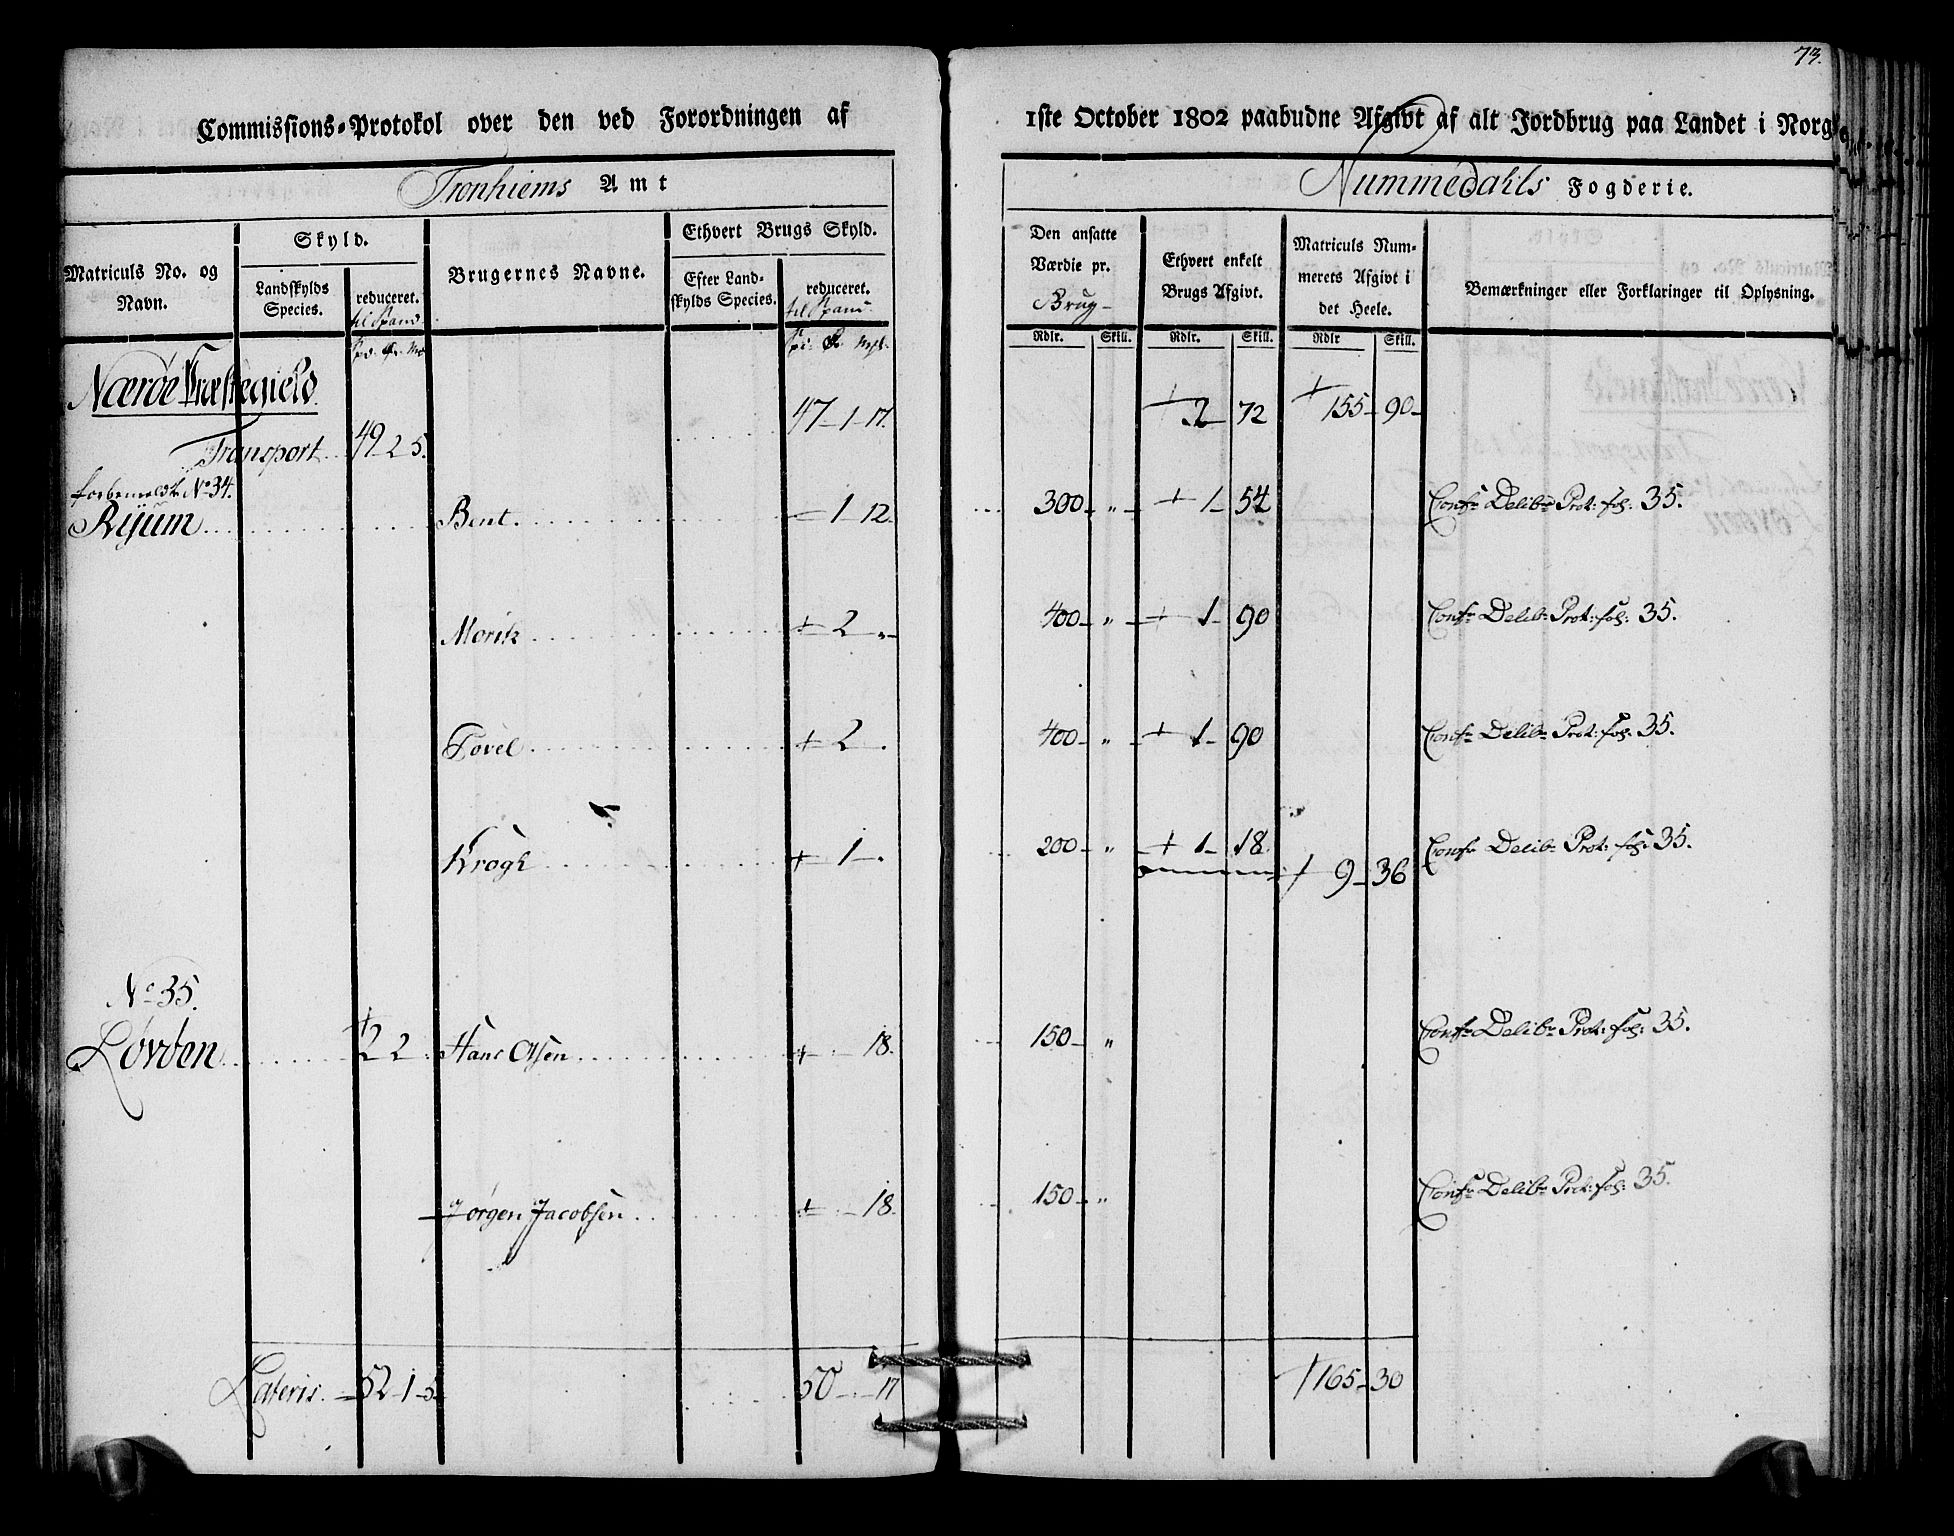 73.
Commissions-Protokol over den ved Forordningen af 1ste October 1802 paabudne Afgivt af alt Jordbrug paa Landet i Norge
Tronhiems Amt
Nummedahls Fogderie.
Matriculs No. og Navn.
Skyld.
Landskylds Species.
reduceret. til Spand.
Brugernes Navne.
Ethvert Brugs Skyld.
Efter Landskylds Species.
reduceret. til Spand.
Den ansatte Værdie pr. Brug
Ethvert enkelt Brugs Afgivt.
Matriculs Nummerets Afgivt i det Heele.
Bemærkninger eller Forklaringer til Oplysning.
Rdlr. Skill. Rdlr. Skill. Rdlr Skill.
Nærøe Præstegield
Transport 49 2 5. 47 1 17. + 2 72 + 155 90
forbemeldte No 34.
Ryum Bent. 1 12. 300 " + 1 54 Confr Delibr Prot: fol: 35.
Morik + 2 " 400 " + 1 90 Confr Delibr Prot: fol: 35.
Tovel + 2 . 400 " + 1 90 Confr Delibr Prot: fol: 35.
Krogh + 1 . 200 " + 1 18. + 9 36 Confr Delibr Prot: fol: 35.
No 35.
Løvøen + 2 2 . Hans Olsen + 18. 150 " Confr Delibr Prot: fol: 35.
Jørgen Jacobsen + 18. 150 " Confr Delibr Prot: fol: 35.
Lateris. 52 1 5 50 . 17 + 165 30